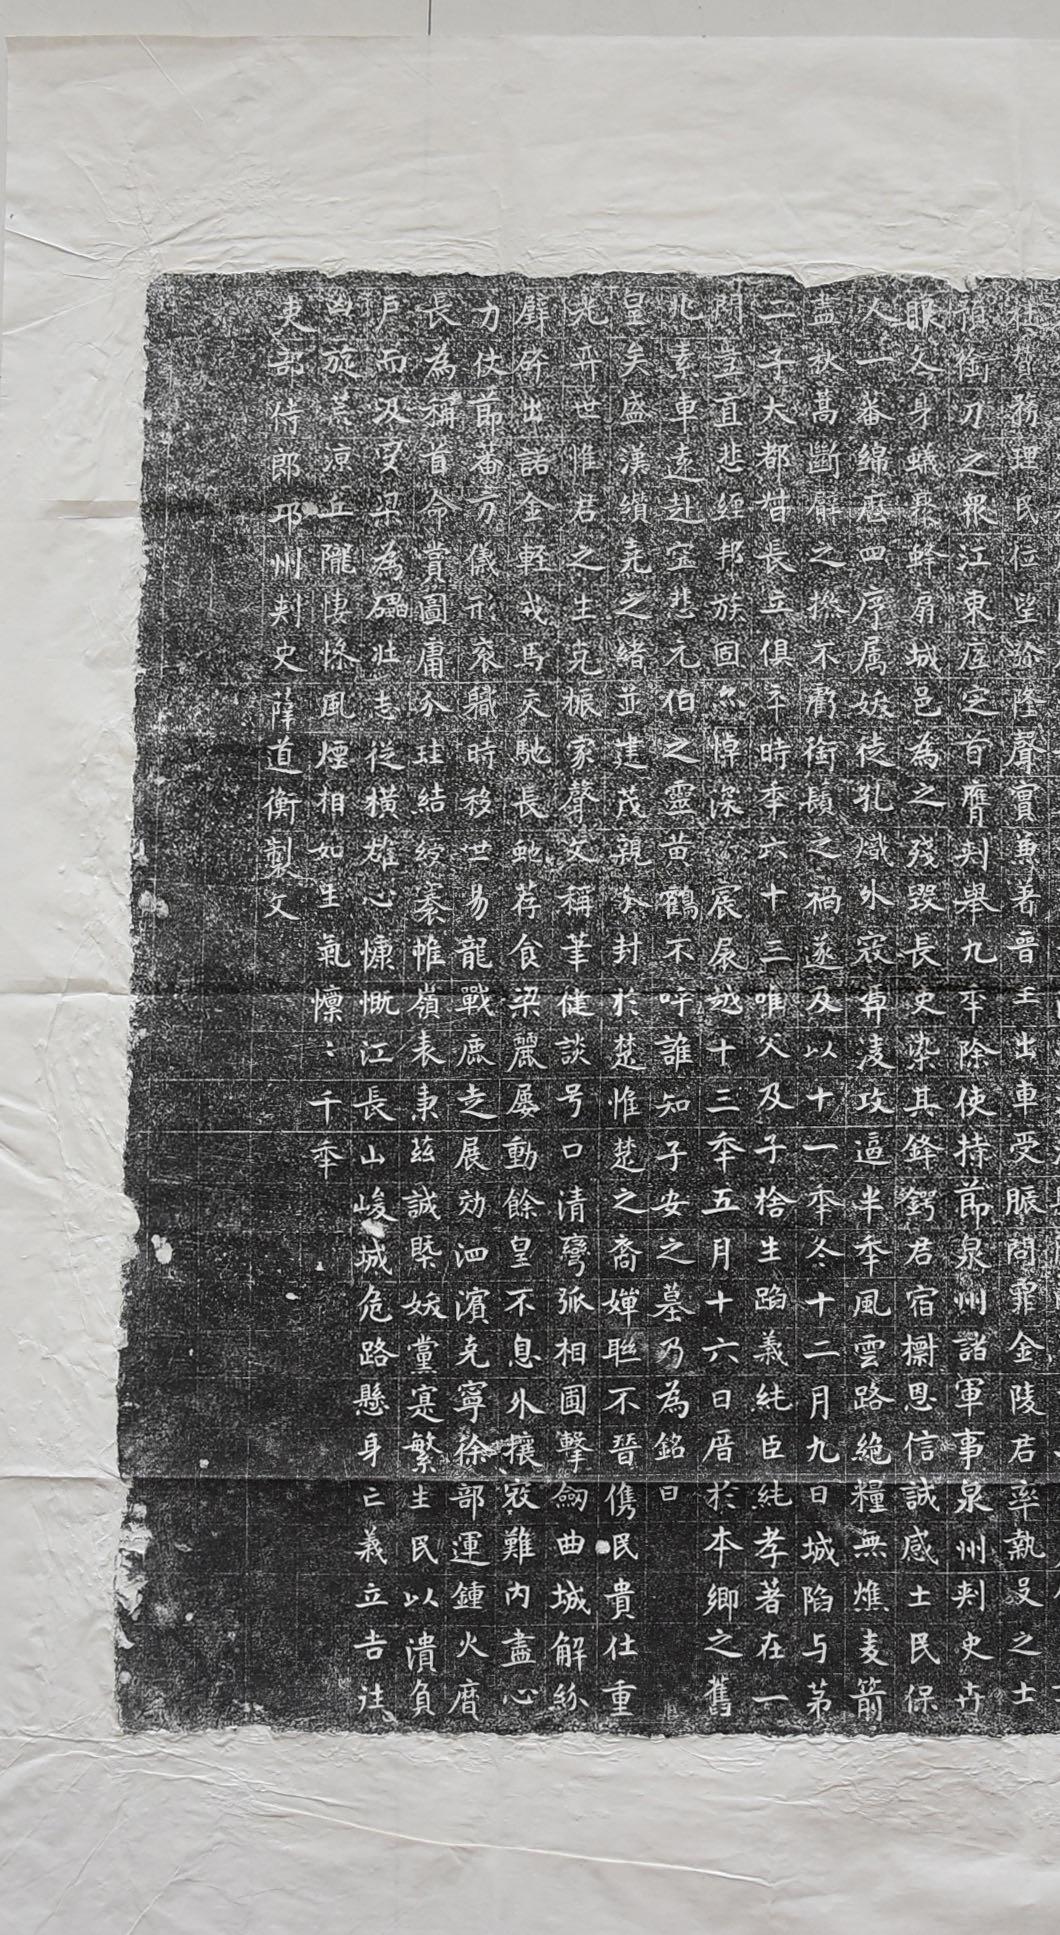 務理民位望隆聲實兼著晉王出車受脤問罪金陵君率執殳之士
銜刀之眾江東底定首膺刾舉九年除使持節泉州諸軍事泉州刾史卉
服文身蟻聚蜂扇城邑為之殘毀長吏染其鋒鍔君宿樹恩信誠感士民保
人一蕃綿歷四序屬妖徒孔熾外寇凌攻逼半年風雲路絕糧無燋麦箭
盡秋蒿斷臂之搽不虧銜鬚之禍遂及以十一年冬十二月九日城陷与苐
二子大都督長立俱卒時年六十三唯父及子捨生蹈義純臣純孝著在一
門豈直悲經邦族固亦悼深宸扆越十三年五月十六日厝於本鄉之舊
兆素車遠赴空悲元伯之靈黄鶴不呼誰知子安之墓乃為銘曰
皇矣盛漢纘堯之緒並建茂親分封於楚惟楚之裔嬋聯不晉儁民貴仕重
光弈世惟君之生克振家聲文稱筆健談号口清彎弧相圃擊劒曲城解紛
辟命出諾金輕戎馬交馳長虵荐食梁麗屡動餘皇不息外攘寇難內盡心
力仗節蕃方儀形袞職時移世易龍戰鹿走展効泗濱克寧徐部運鍾火曆
長為稱首命賞圖庸分珪結綬褰帷嶺表東茲誠槩妖黨寔繁生民以潰負
戶而汲穿梁為礧壯志從橫雄心慷慨江長山峻城危路懸身亡義立吉往
凶旋荒涼丘隴悽愴風煙相如生氣懍〻千年
吏部侍郎邛州刾史薛道衡製文